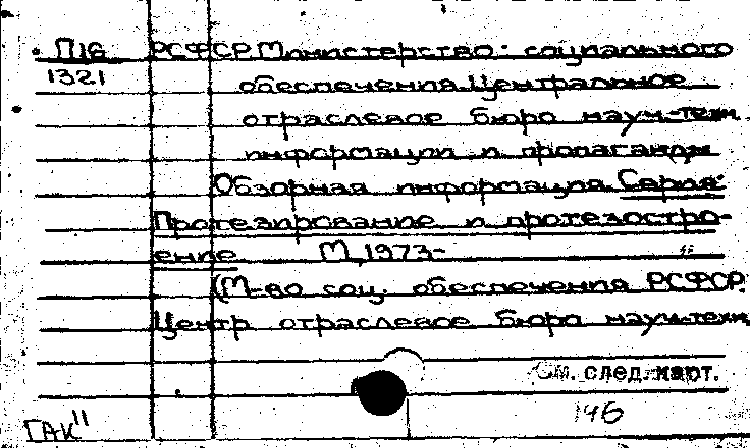 П16 РСФСР. Министерство социального
1321 обеспечения. Центральное
отраслевое бюро науч.-техн.
информации и пропаганды
Обзорная информация. Серия:
Протезирование и протезостро-
ение М., 1973-
(М-во соц. обеспечения РСФСР.
Центр отраслевое бюро науч.-техн.
См. след. карт.
146
ГАК"